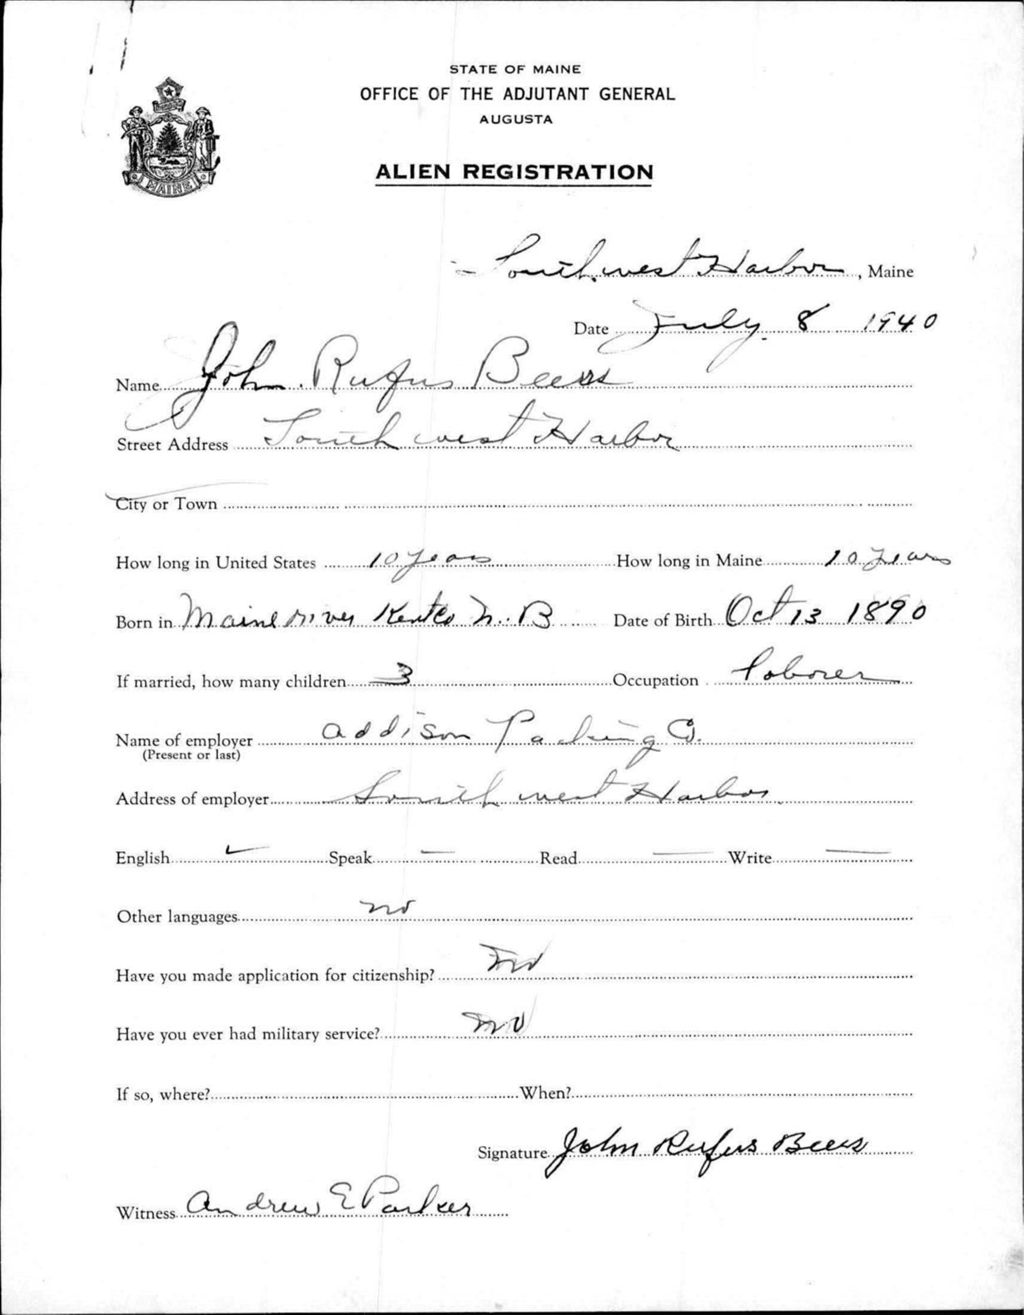 STATE OF MAINE
OFFICE OF THE ADJUTANT GENERAL
AUGUSTA
MAINE
ALIEN REGISTRATION
Southwest Harbor, Maine
Date July 8 1940
Name John Rufus Beers
Street Address South west Harbor
City or Town
How long in United States 10 years How long in Maine 10 Years
Born in Maine river N. B Date of Birth Oct 13 1890
If married, how many children 3 Occupation laborer
Name of employer Addison Packing Co.
(Present or last)
Address of employer South west Harbor
English ✓ Speak — Read — Write —
Other languages no
Have you made application for citizenship? no
Have you ever had military service? no
If so, where? When?
Signature John Rufus Beers
Witness Andrew E Parker